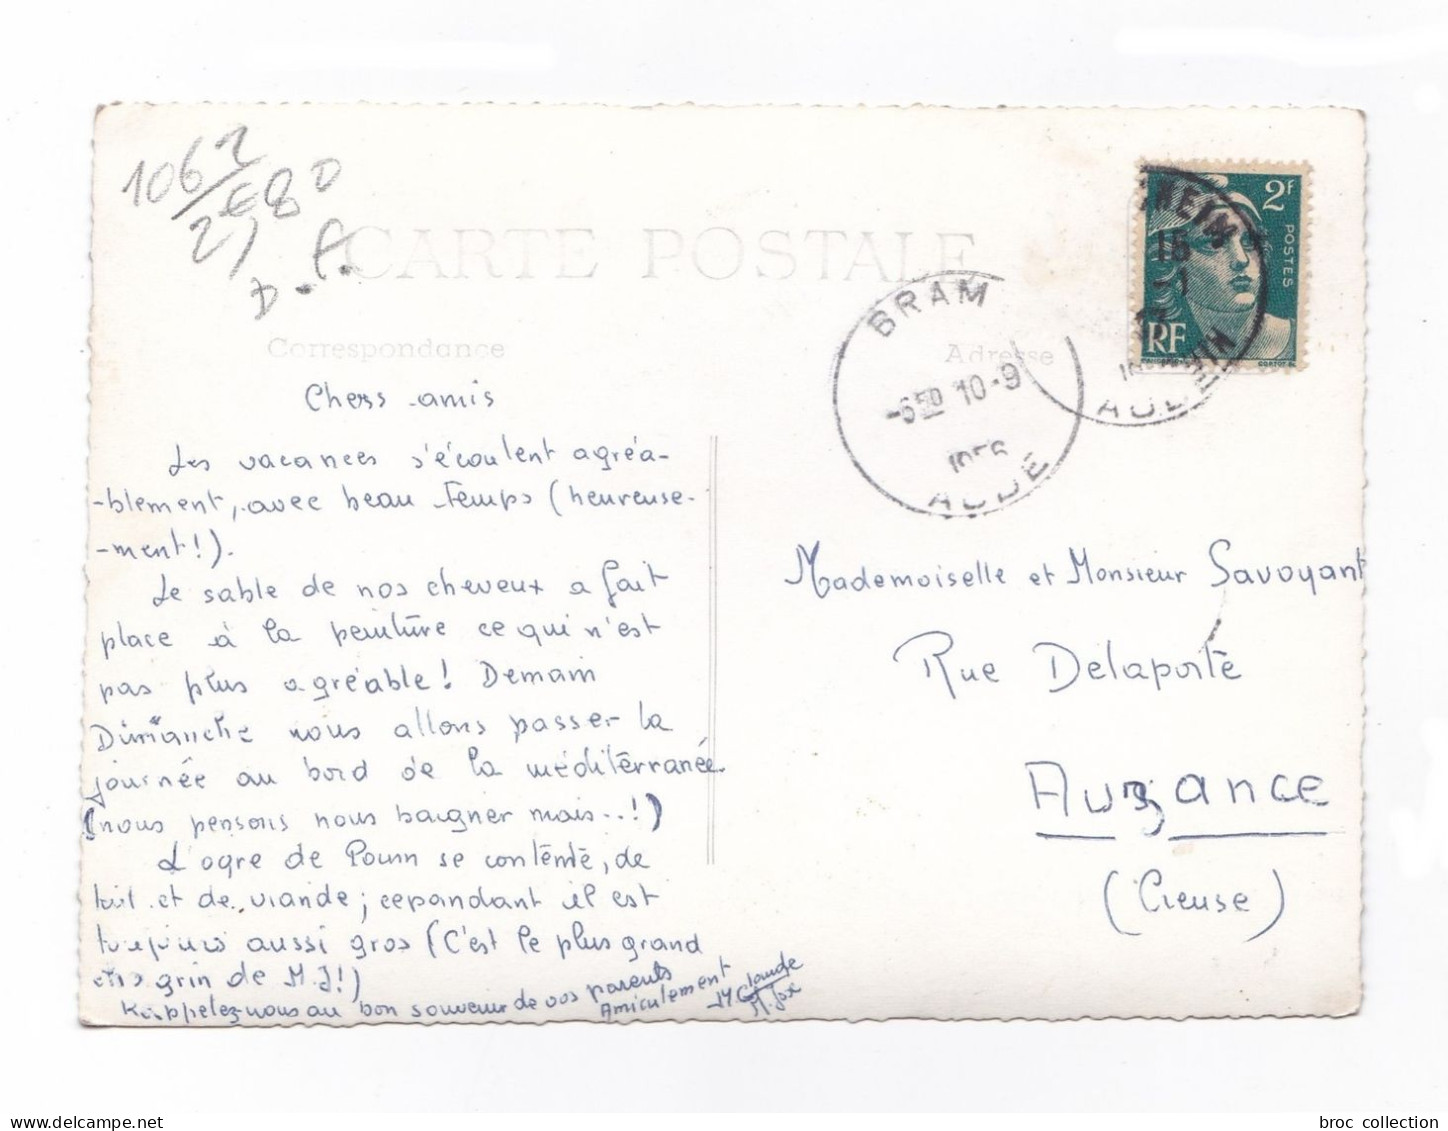 1062
21 €80
D.F.
CARTE POSTALE
Correspondance
Adresse
BRAM
10-9
AUDE
HEIM
15
AUDE
2F
POSTES
RF
Chers amis
Les vacances s'écoulent agréa-
-blement, avec beau temps (heureuse-
-ment!).
Le sable de nos cheveux a fait
place à la peinture ce qui n'est
pas plus agréable! Demain
Dimanche nous allons passer la
journée au bord de la méditerranée
(nous pensons nous baigner mais..!)
L'ogre de se contente, de
lait et de viande; cependant il est
toujours aussi gros (C'est le plus grand
chagrin de M.J!)
Rappelez-nous au bon souvenir de vos parents
Amicalement
M Claude
M. José
Mademoiselle et Monsieur Savoyant
Rue Delaporte
Auzance
(Creuse)
broc collection